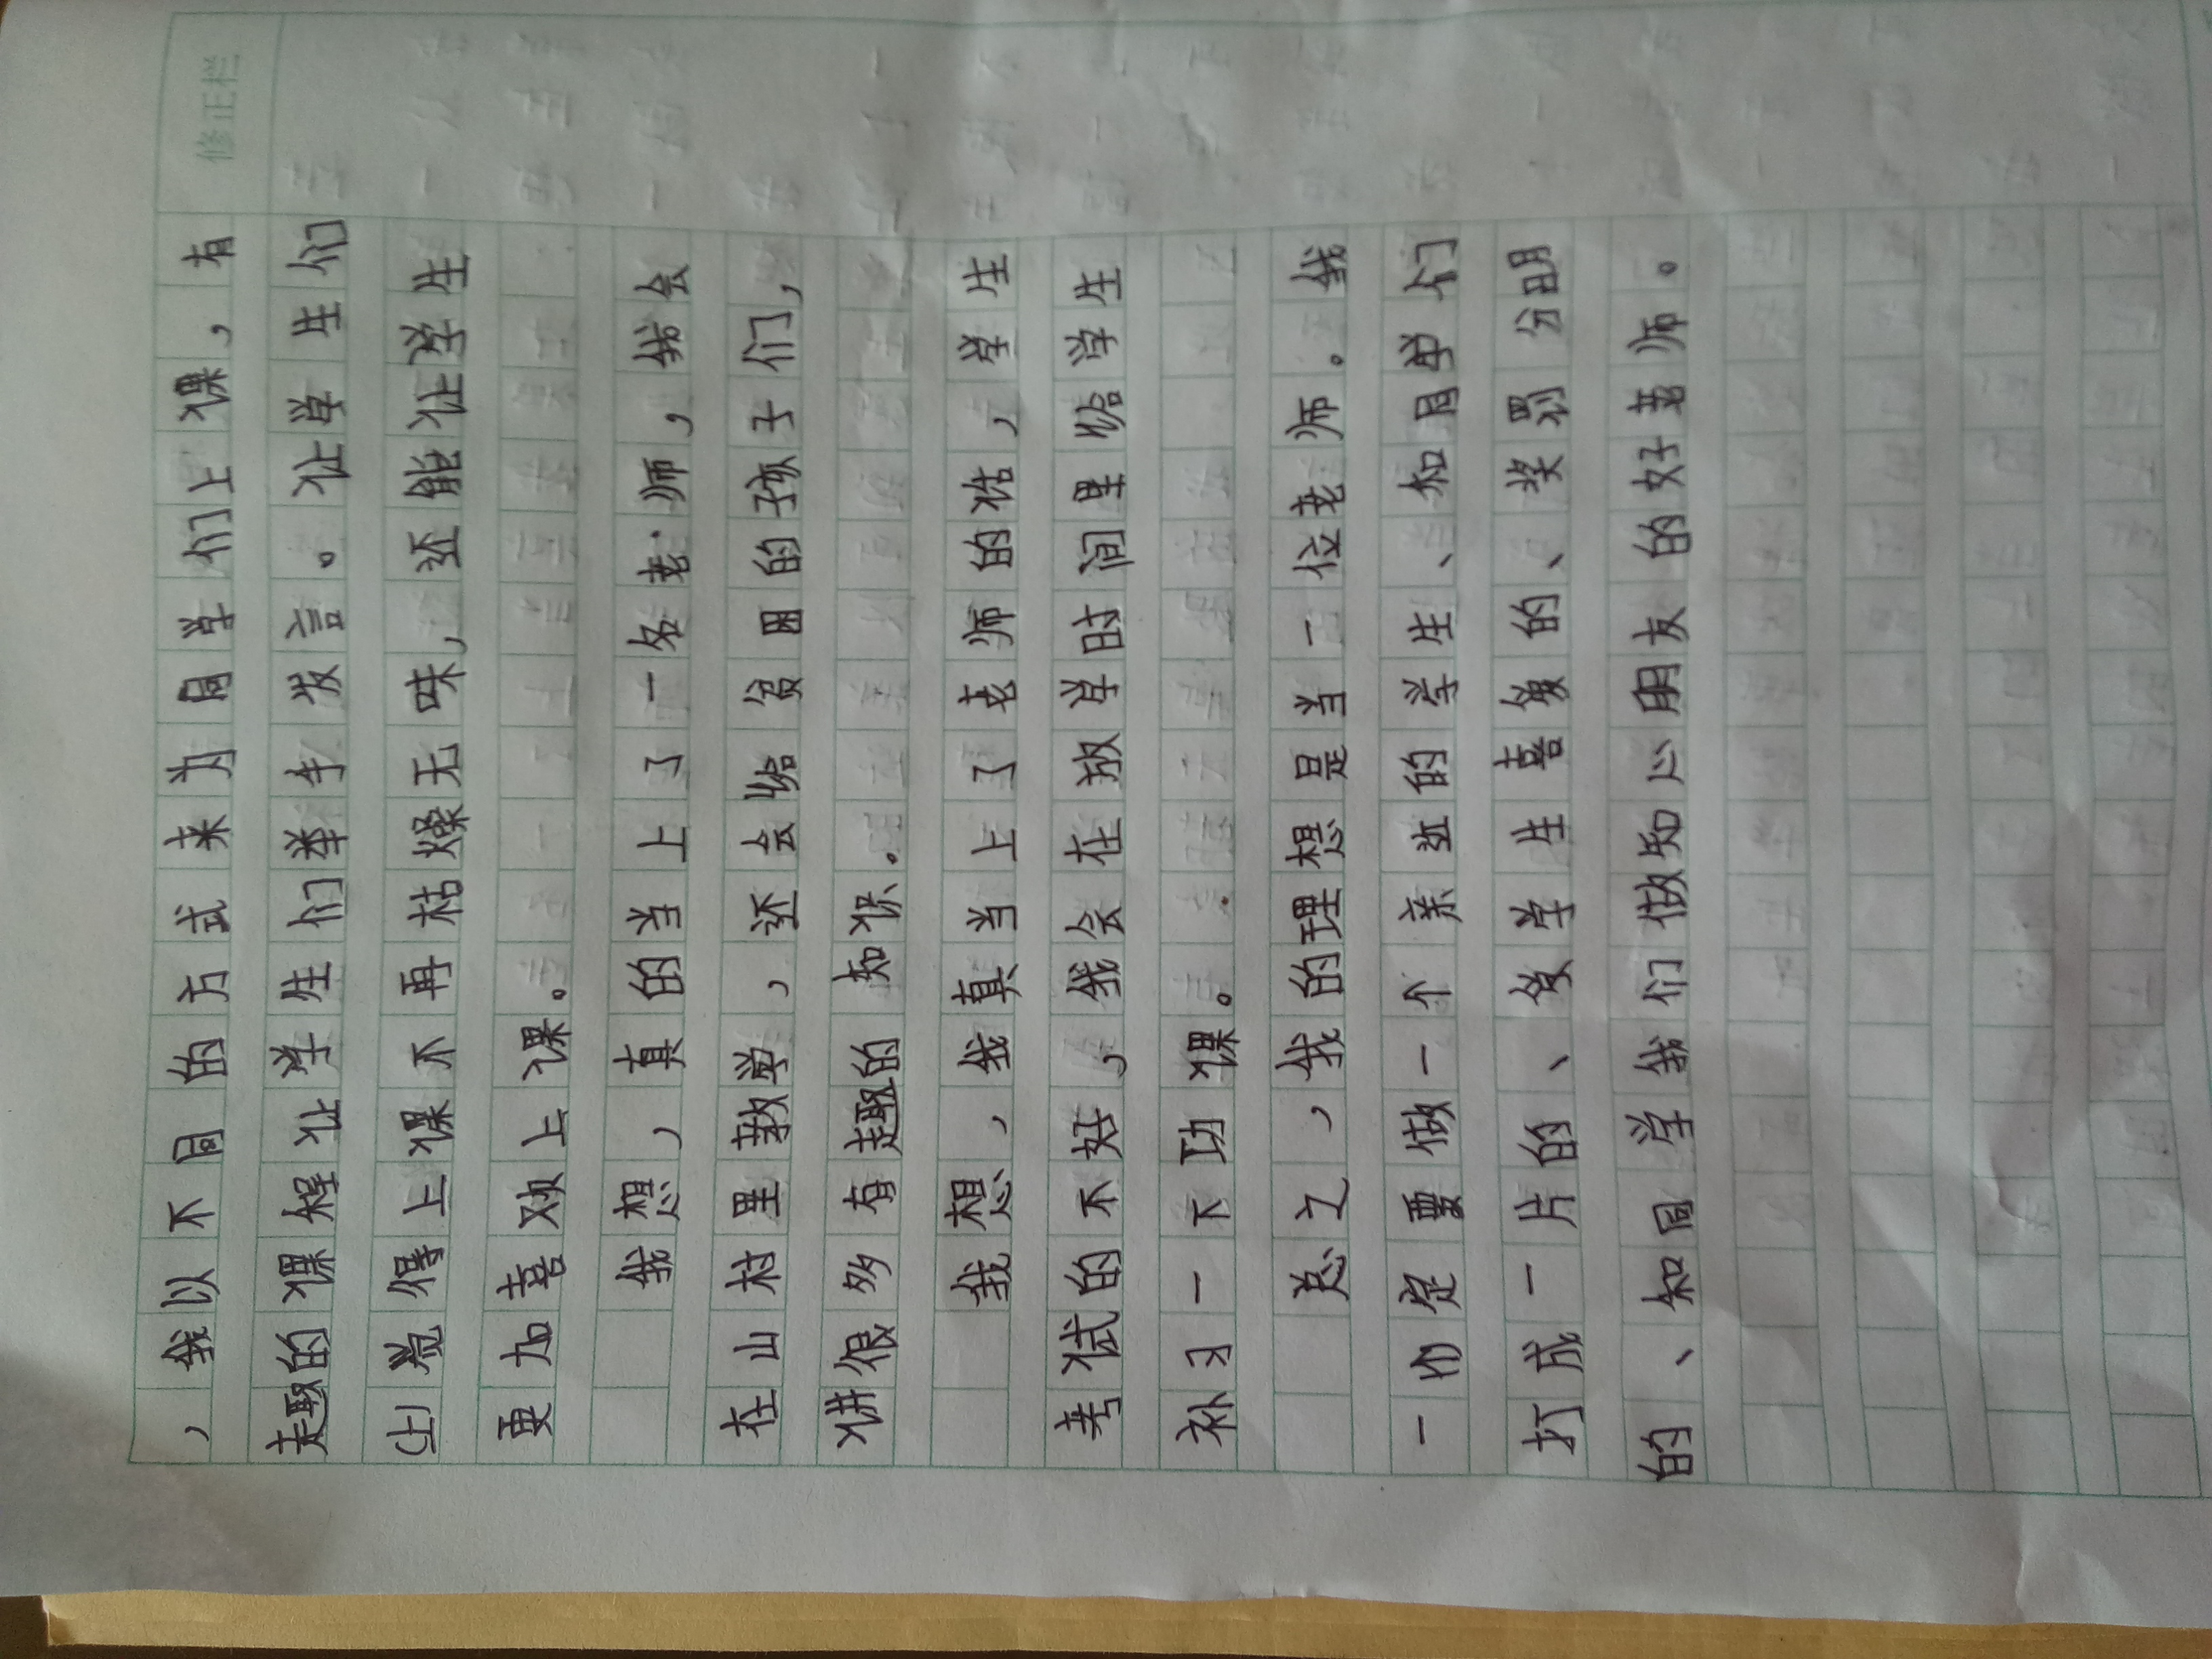 修正栏
，我以不同的方式来为同学们上课，有
趣的课程让学生们举手发言。让学生们
觉得上课不再枯燥无味，还能让学生
更加喜欢上课。
我想，真的当上了一名老师，我会
在山村里教学，还会给贫困的孩子们，
讲很多有趣的知识。
我想，我真当上了老师的话，学生
考试的不好，我会在放学时间里给学生
补习一下功课。
总之，我的理想是当一位老师。我
一定要做一个亲近的学生、和同学们
打成一片的、受学生喜爱的、奖罚分明
的、和同学我们做知心朋友的好老师。